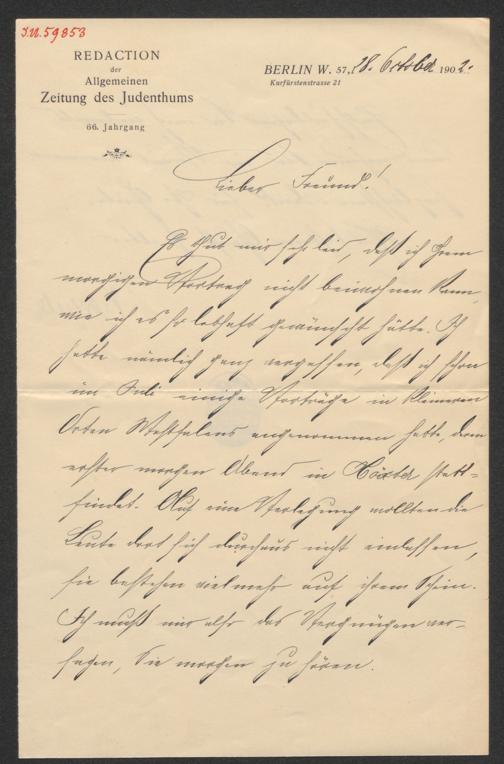 J.N. 59853
REDACTION
der
Allgemeinen
Zeitung des Judenthums
66. Jahrgang
BERLIN W. 57, 28. October 1902.
Kurfürstenstrasse 21
Lieber Freund!
Es thut mir sehr leid, daß ich Ihrem
morgigen Vortrag nicht beiwohnen kann,
wie ich es so lebhaft gewünscht hätte. Ich
hatte nämlich ganz vergessen, daß ich schon
im Juli einige Vorträge in kleineren
Orten Westfalens angenommen hatte, deren
erster morgen Abend in Höxter statt-
findet. Auf eine Verlegung wollten die
Leute dort sich durchaus nicht einlassen,
sie bestehen vielmehr auf ihrem Schein.
Ich muß mir also das Vergnügen ver-
sagen, Sie morgen zu hören.